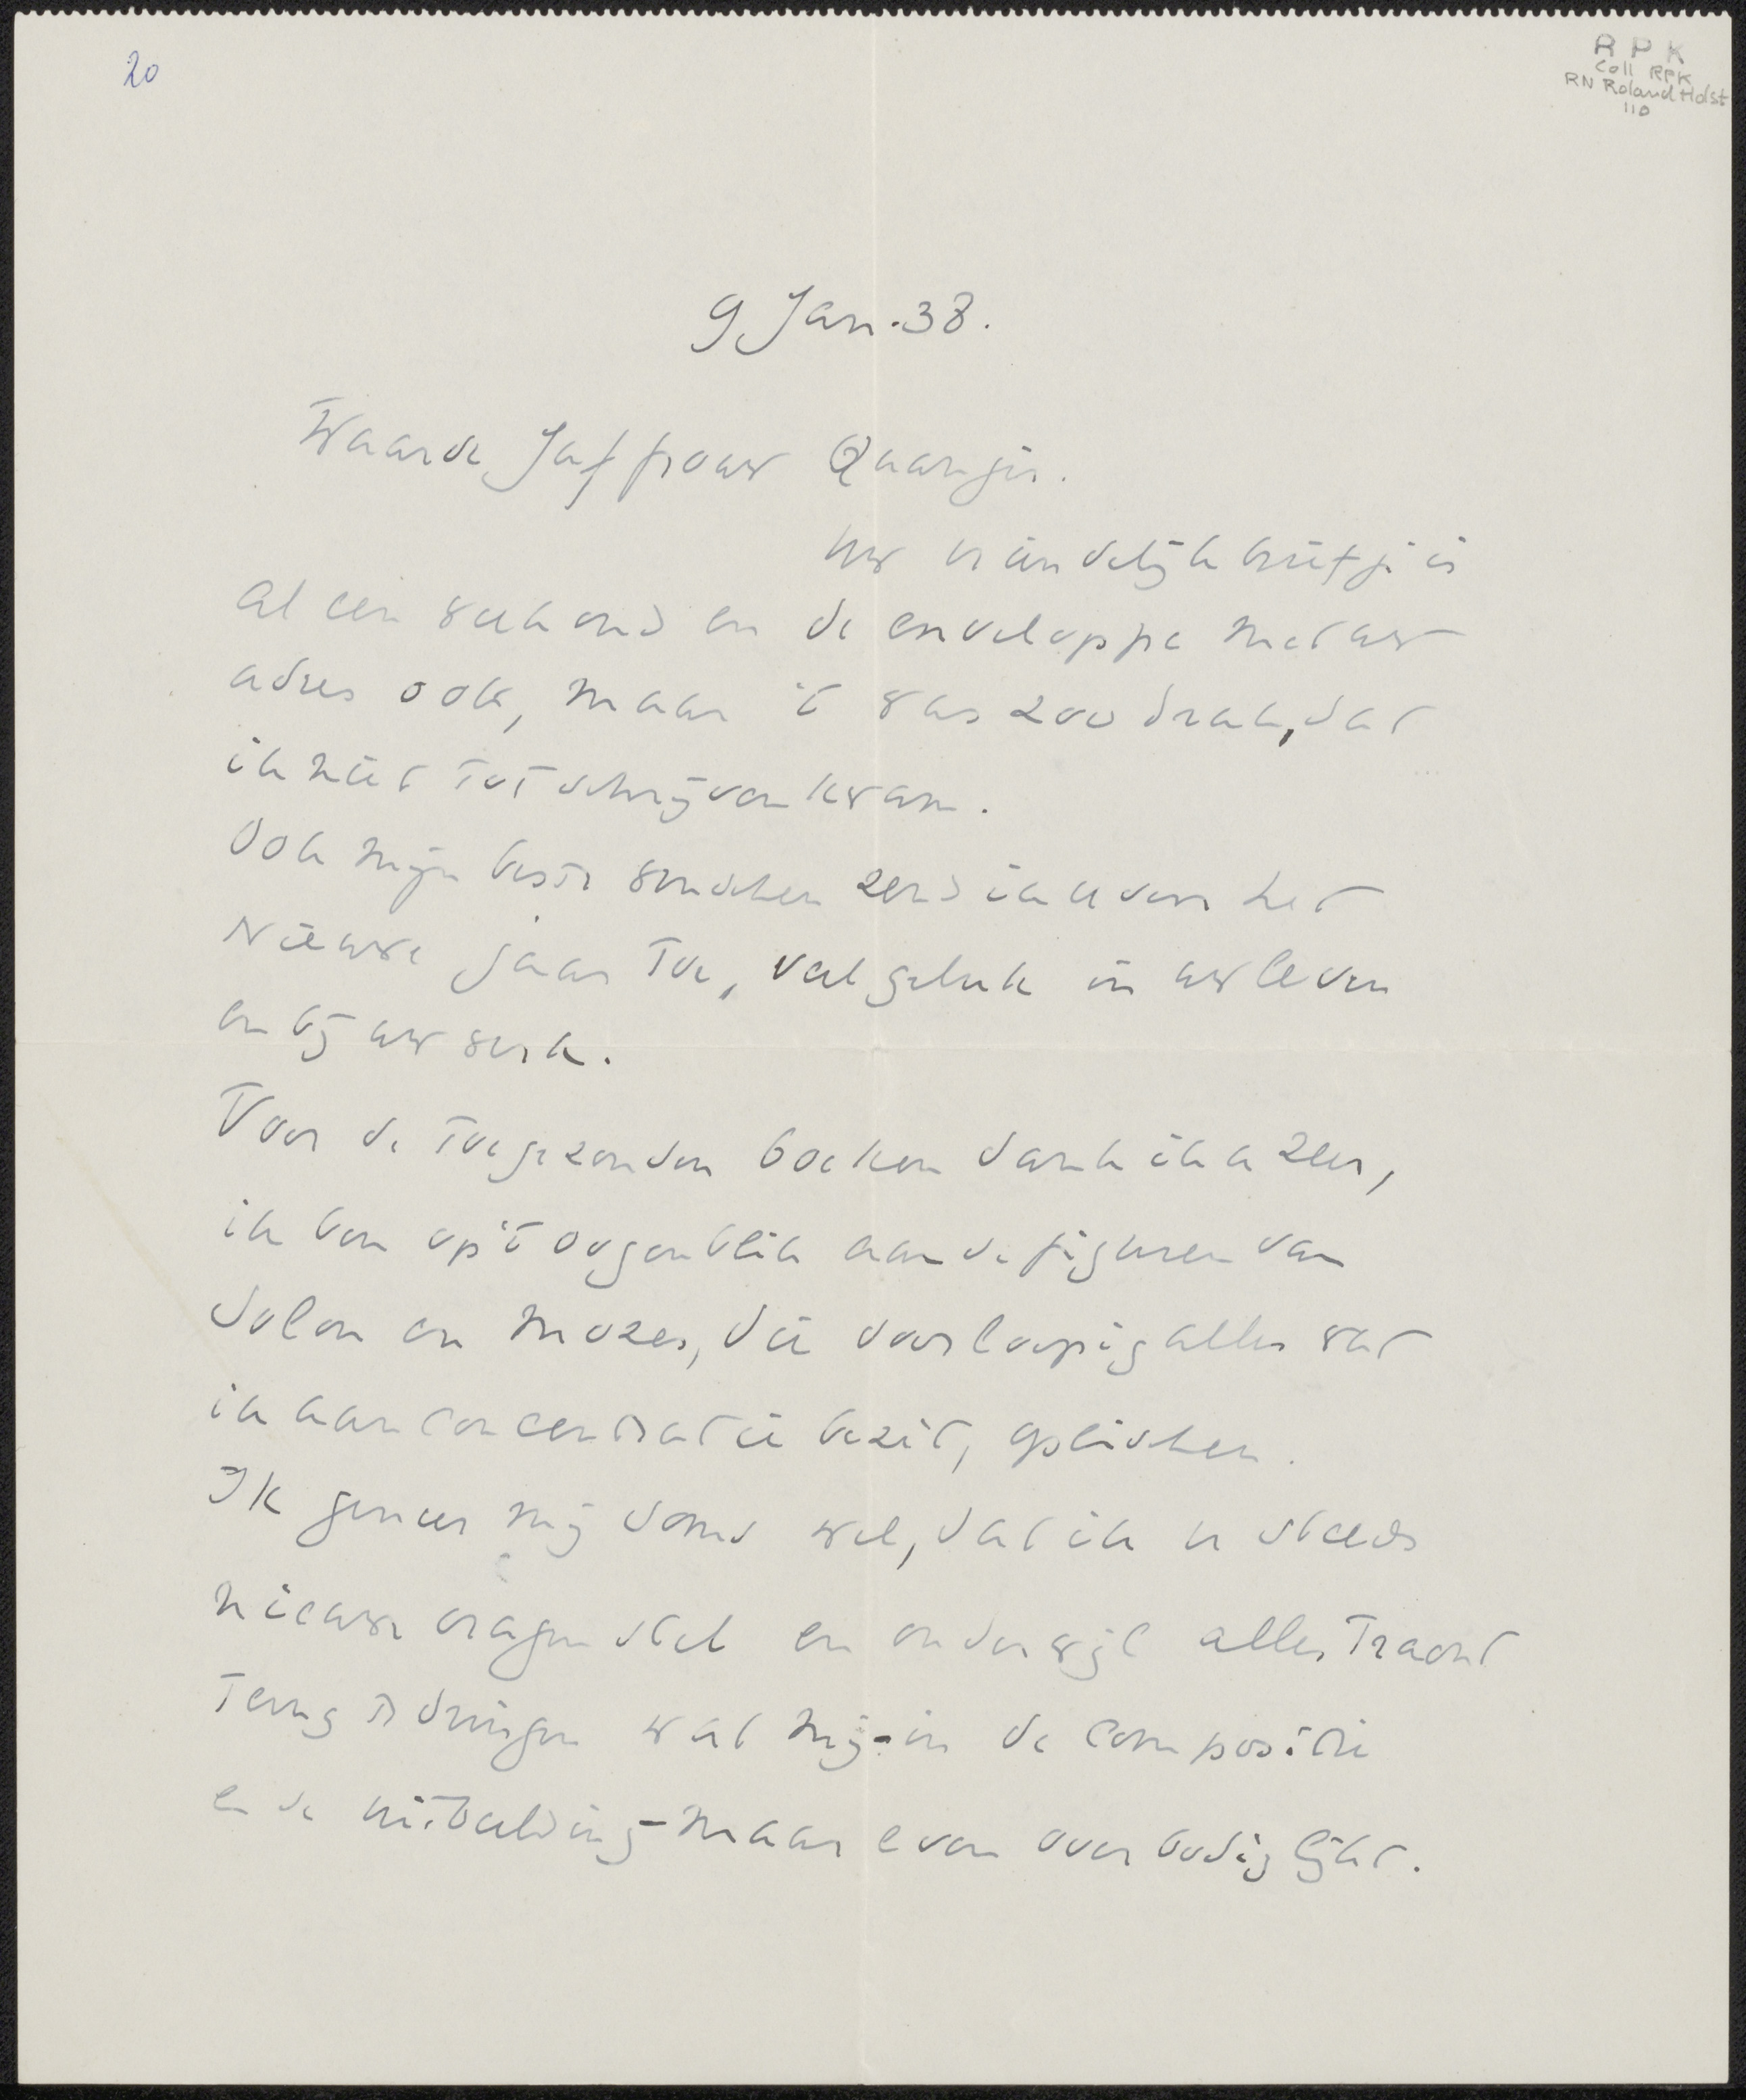 20
R P K
Coll RPK
RN Roland Holst
110
9 Jan. 38.
Waarde Juffrouw Quarijn.
Uw vriendelijk briefje is
al een week oud en de enveloppe met uw
adres ook, maar 't was zoo druk, dat
ik niet tot schrijven kwam.
Ook mijn beste wenschen zend ik u voor het
Nieuwe jaar toe, veel geluk in uw leven
en bij uw werk.
Voor de toegezonden boeken dank ik u zeer,
ik ben op 't oogenblik aan de figuren van
Solon en Mozes, die voorloopig alles wat
ik aan concentratie bezit, opeischen.
Ik geneer mij soms wel, dat ik u steeds
nieuwe vragen stel en onderwijl alles tracht
terug te dringen wat mij - in de compositie
en de uitbeelding - maar even overbodig lijkt.